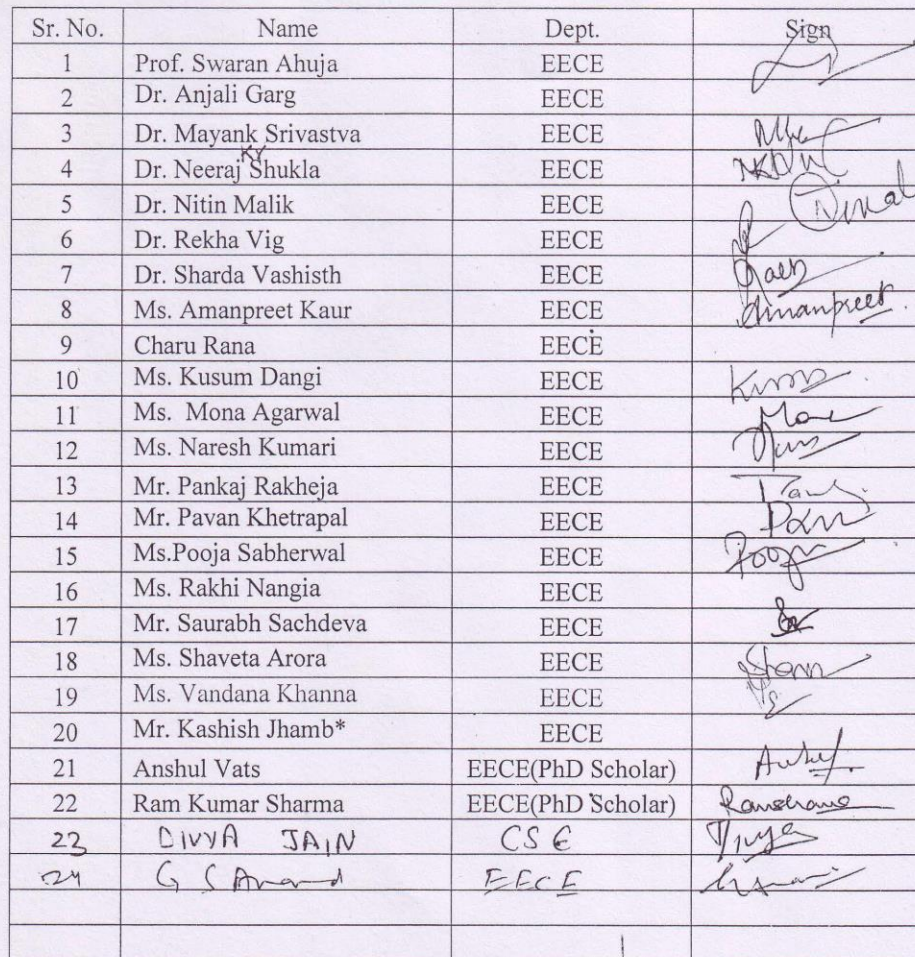 Sr. No. Name Dept. Sign
1 Prof. Swaran Ahuja EECE
2 Dr. Anjali Garg EECE
3 Dr. Mayank Srivastva EECE
4 Dr. Neeraj Kr. Shukla EECE
5 Dr. Nitin Malik EECE
6 Dr. Rekha Vig EECE
7 Dr. Sharda Vashisth EECE
8 Ms. Amanpreet Kaur EECE Amanpreet.
9 Charu Rana EECE
10 Ms. Kusum Dangi EECE
11 Ms. Mona Agarwal EECE
12 Ms. Naresh Kumari EECE
13 Mr. Pankaj Rakheja EECE
14 Mr. Pavan Khetrapal EECE
15 Ms.Pooja Sabherwal EECE Pooja
16 Ms. Rakhi Nangia EECE
17 Mr. Saurabh Sachdeva EECE
18 Ms. Shaveta Arora EECE
19 Ms. Vandana Khanna EECE
20 Mr. Kashish Jhamb* EECE
21 Anshul Vats EECE(PhD Scholar)
22 Ram Kumar Sharma EECE(PhD Scholar)
23 DIVYA JAIN CSE Divya
24 G S Anand EECE